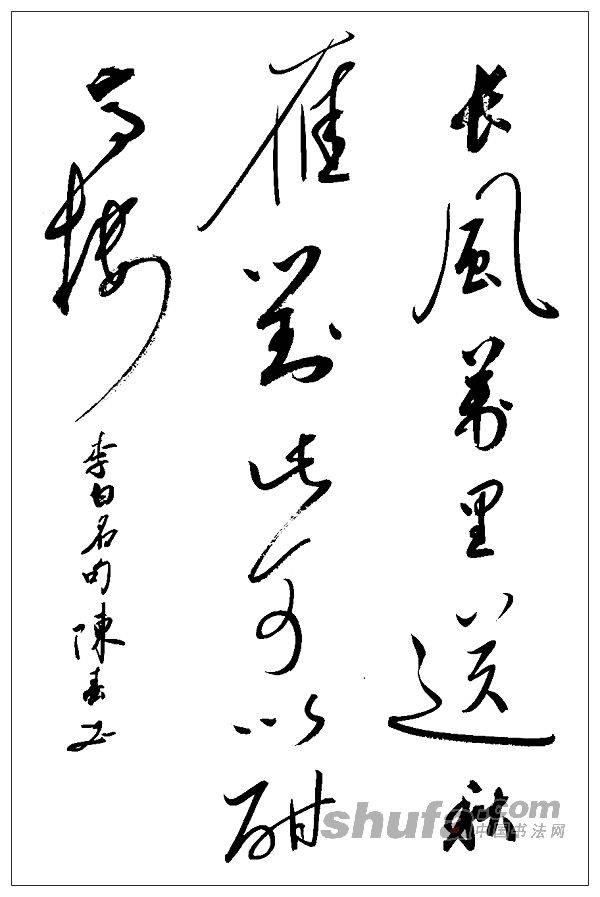 長風萬里送秋
雁對此可以酣
高樓
李白名句陳春
shufa.com
中国书法网